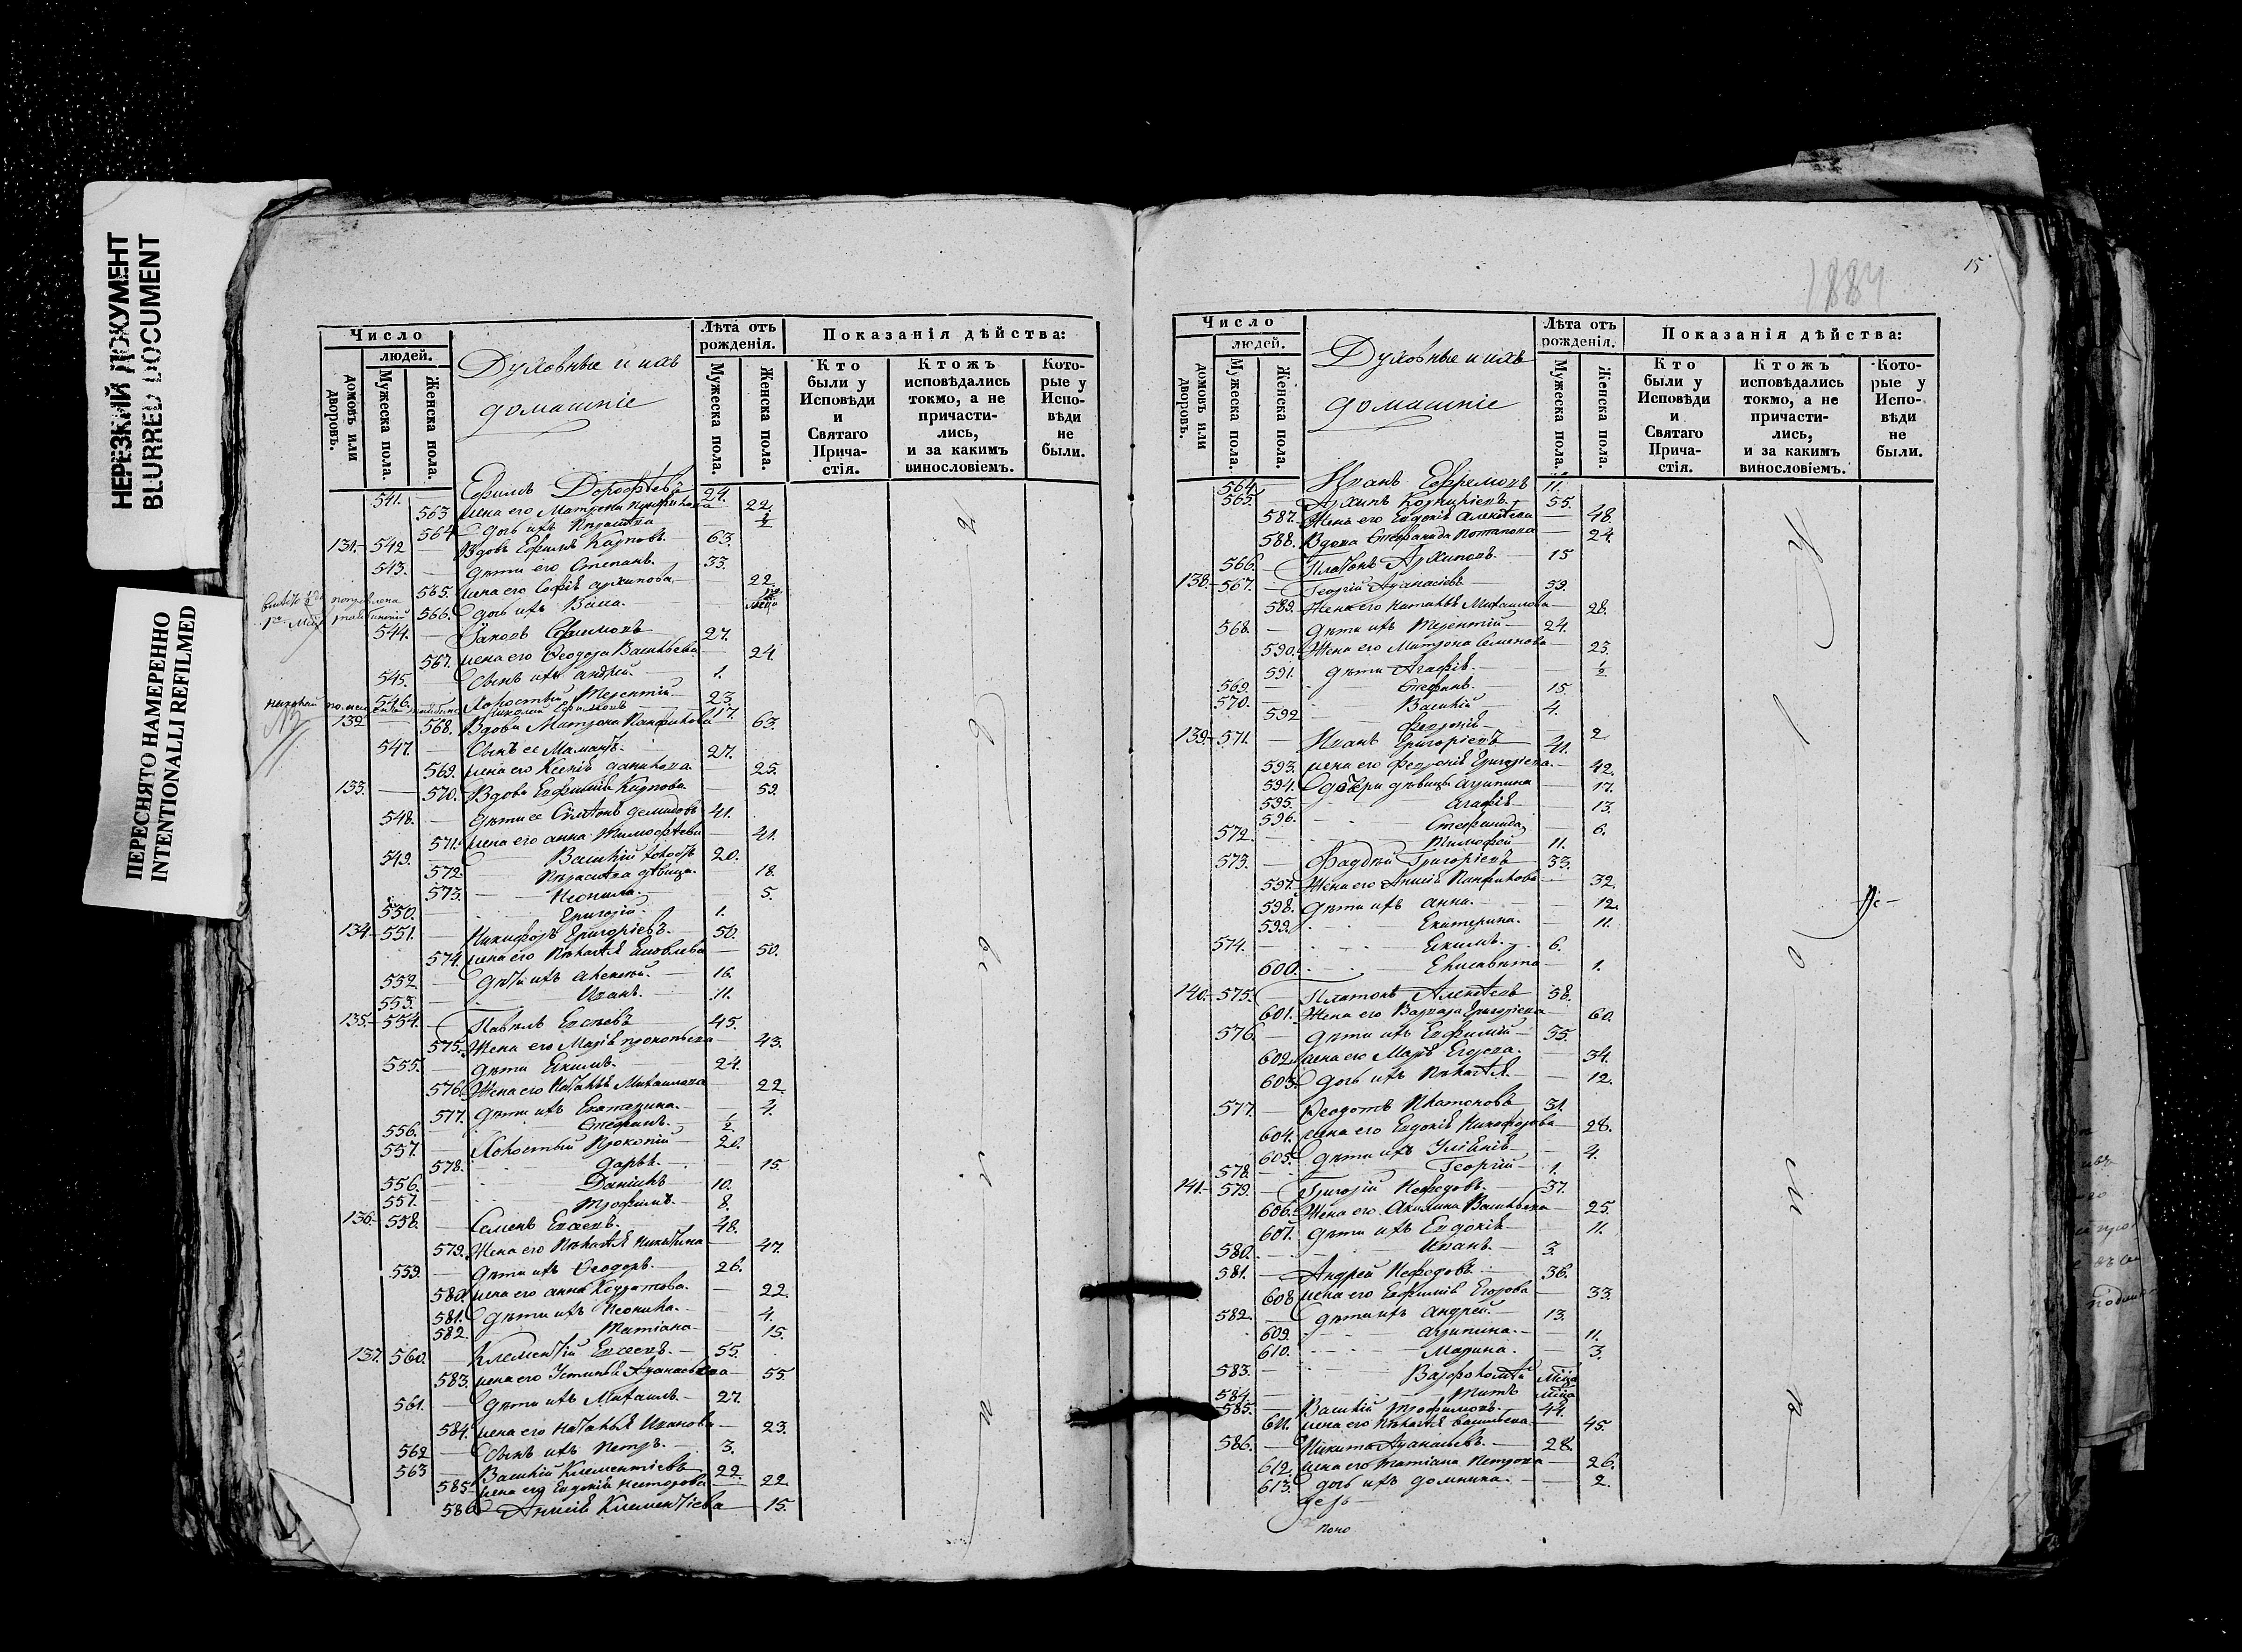 НЕРЕЗКИЙ ДОКУМЕНТ
BLURRED DOCUMENT
ПЕРЕСНЯТО НАМЕРЕННО
INTENTIONALLI REFILMED
Число
людей.
домовъ или дворовъ.
Мужеска пола.
Женска пола.
Духовные и ихъ
домашніе
Лѣта отъ рожденія.
Мужеска пола.
Женска пола.
Показанія дѣйства:
Кто были у Исповѣди и Святаго Прича- стія.
Ктожъ исповѣдались токмо, а не причасти- лись, и за какимъ винословіемъ.
Кото- рые у Испо- вѣди не были.
541. Ефимъ Дорофѣевъ 24.
563 жена его Матрона 22.
564 дочь ихъ Параскева ½
131. 542 Вдовъ Ефимъ Карповъ 63.
543. дѣти его Степанъ 33.
565. жена его Софія Архипова 22.
566. дочь ихъ Васса
544. Яковъ Ефимовъ 27.
567. жена его Ѳеодора Васильева 24.
545. Сынъ ихъ Андрей 1.
546. Холостый Терентій 23.
Николай Ефимовъ 17.
132 568. Вдова Матрона Панфилова 63.
547. Сынъ ее Мамантъ 27.
569. жена его Ксенія Данилова 25.
133. 570. Вдова Евфимія Карпова 59.
548. дѣти ее Симеонъ Демидовъ 41.
571. жена его Анна Тимофѣева 41.
549. Василій холостъ 20.
572. Параскева дѣвица 18.
573. Неонила 5.
550. Григорій 1.
134. 551. Никифоръ Григоріевъ 50.
574. жена его Пелагія Яковлева 50.
552 дѣти ихъ Алексѣй 16.
553. Иванъ 11.
135. 554. Павелъ Евсѣевъ 45.
575. Жена его Марія Прокопьева 43.
555. дѣти Екимъ 24.
576. Жена его Наталья Михаилова 22
577. дѣти ихъ Екатерина 4.
556. Стефанъ ½.
557. Холостый Прокопій 20.
578. Дарья 15.
556. Даніилъ 10.
557. Трофимъ 8.
136. 558. Семенъ Евсеевъ 48.
579. Жена его Пелагія Никитина 47.
559. дѣти ихъ Ѳеодоръ 26.
580. жена его Анна Кондратова 22.
581. дѣти ихъ Неонила 4.
582. Татіана 15.
137. 560. Климентій Евсеевъ 55.
583. жена его Устинья Аѳанасьева 55.
561. дѣти ихъ Михаилъ 27.
584. жена его Наталья Иванова 23.
562 Сынъ ихъ Петръ 3.
563 Василій Климентіевъ 22.
585. жена его Евдокія Нестерова 22
586 Анисія Климентіева 15.
1884
15
Число
людей.
домовъ или дворовъ.
Мужеска пола.
Женска пола.
Духовные и ихъ
домашніе
Лѣта отъ рожденія.
Мужеска пола.
Женска пола.
Показанія дѣйства:
Кто были у Исповѣди и Святаго Прича- стія.
Ктожъ исповѣдались токмо, а не причасти- лись, и за какимъ винословіемъ.
Кото- рые у Испо- вѣди не были.
564 Иванъ Ефремовъ 11.
565. Архипъ 55.
587. Жена его Евдокія Алексѣева 48.
588. Вдова Стефанида Потапова 24.
566. Платонъ Архиповъ 15
138. 567. Георгій Аѳанасіевъ 59.
589. Жена его Наталья Михаилова 28.
568. дѣти ихъ Терентій 24.
590. Жена его Матрона Семенова 23.
591. дѣти Агафія ½
569. Стефанъ 15.
570. Василій 4.
592 Февронія 2
139. 571. Иванъ Григоріевъ 41.
593. жена его Февронія Григорьева 42.
594. дочери дѣвицы Агрипина 17.
595. Агафія 13.
596. Стефанида 6.
572. Тимофей 11.
573. Фаддей Григоріевъ 33.
597. Жена его Анисія Панфилова 32.
598. дѣти ихъ Анна 12.
599. Екатерина 11.
574. Екимъ 6.
600. Елисавета 1.
140. 575. Платонъ Алексѣевъ 58.
601. Жена его Варвара Григорьева 60.
576. дѣти ихъ Евфимій 35.
602. жена его Марія Егорова 34.
603. дочь ихъ Пелагія 12.
577. Ѳеодотъ Платоновъ 31.
604. жена его Евдокія Никифорова 28.
605. дѣти ихъ Уліянія 4.
578. Георгій 1.
141. 579. Григорій Нефедовъ 37.
606. Жена его Акилина Васильева 25.
607. дѣти ихъ Евдокія 11.
580. Иванъ 3.
581. Андрей Нефедовъ 36.
608 жена его Евфимія Егорова 33.
582. дѣти ихъ Андрей 13.
609. Агрипина 11.
610. Марина 3.
583. Варфоломѣй
584. Титъ
585. Василій Трофимовъ 44.
611. жена его Пелагія Васильева 45.
586. Никита Аѳанасьевъ 28.
612. жена его Татіана Петрова 26.
613. дочь ихъ Домника 2.